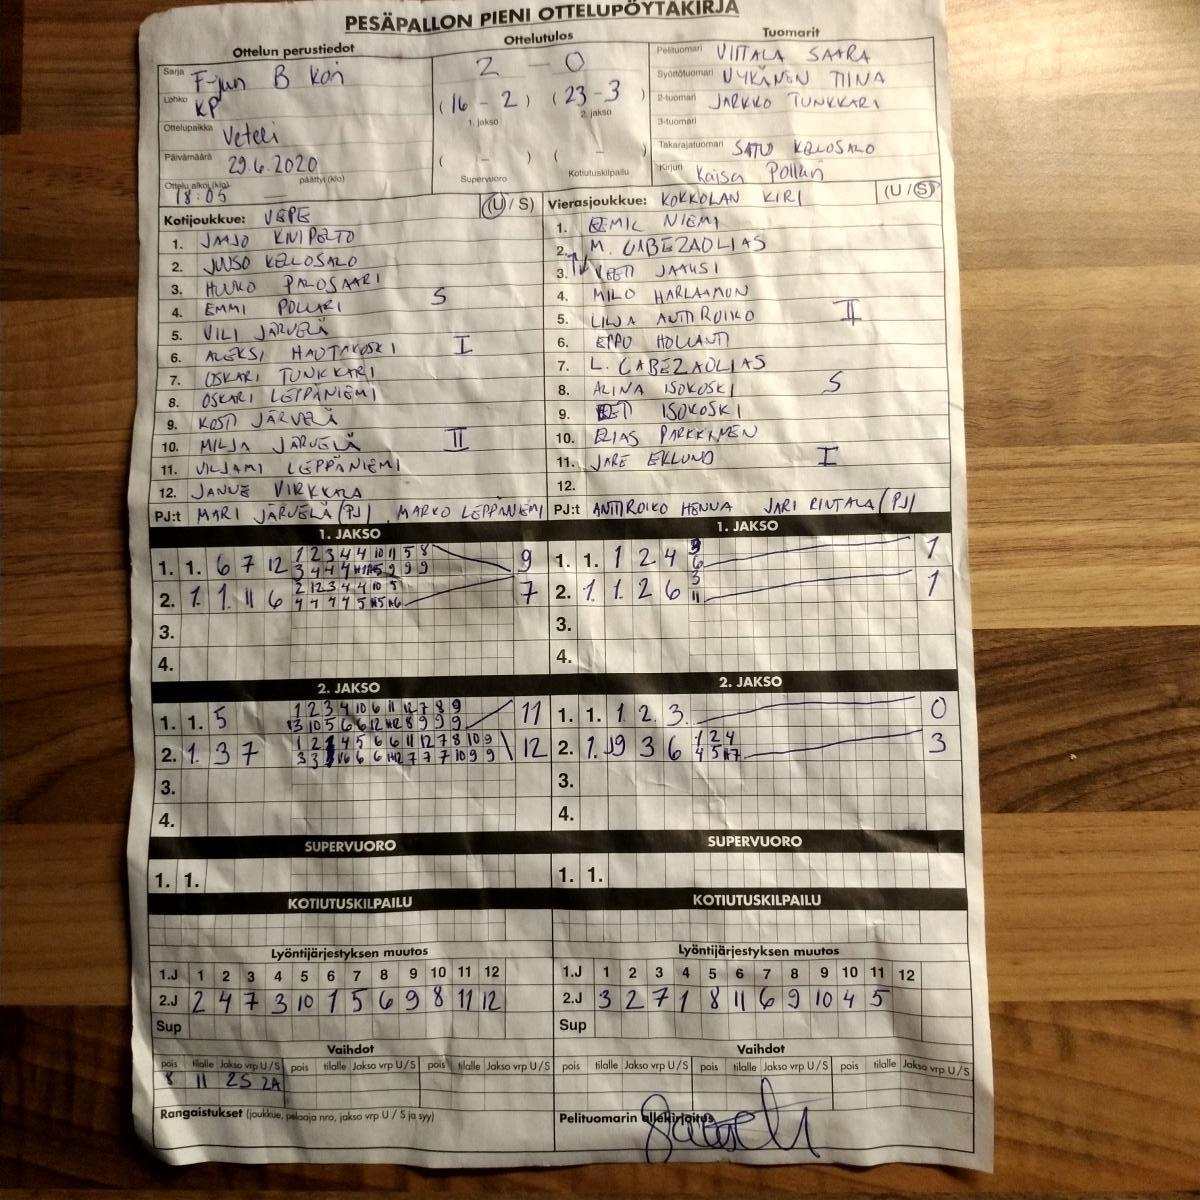 PESÄPALLON PIENI OTTELUPÖYTÄKIRJA
Ottelun perustiedot
Sarja F-jun B
Lohko KP
Ottelupaikka Veteli
Päivämäärä 29.6.2020
Ottelu alkoi (klo) päättyi (klo)
18:05
Ottelutulos
2 - 0
(16 - 2) (23 - 3)
1. jakso 2. jakso
( - ) ( - )
Supervuoro Kotiutuskilpailu
Tuomarit
Pelituomari VIITALA SAARA
Syöttötuomari TIINA
2-tuomari JARKKO TUNKKARI
3-tuomari
Takarajatuomari SATU KELOSALO
Kirjuri Kaisa Pollari
Kotijoukkue: VEPE (U / S)
1. JAAJO KNIPELTO
2. JUUSO KELOSALO
3. PALOSAARI
4. EMMI POLLARI S
5. VILI JÄRVELÄ
6. ALEKSI HAUTAKOSKI I
7. OSKARI TUNKKARI
8. OSKARI LEPPÄNIEMI
9. KOSTI JÄRVELÄ
10. MILJA JÄRVELÄ II
11. VILJAMI LEPPÄNIEMI
12. JANNE VIRKKALA
PJ:t MARI JÄRVELÄ (PJ) MARKO LEPPÄNIEMI
Vierasjoukkue: KOKKOLAN KIRI (U / S)
1. EEMIL NIEMI
2. M. CABEZAOLIAS
3. VEETI JAAKSI
4. MILO
5. LILJA ANTTIROIKO II
6. EPPO HOLLANTI
7. L. CABEZAOLIAS
8. ALINA ISOKOSKI S
9. ISOKOSKI
10. ELIAS PARKKINEN
11. JARE EKLUND I
12.
PJ:t ANTTIROIKO HENNA JARI RINTALA (PJ)
1. JAKSO
1. 1. 6 7 12
1 2 3 4 4 10 11 5 8
9
2. 1. 1. 11 6
2 12 3 4 4 10 5
7
3.
4.
1. JAKSO
1. 1. 1 2 4
6
1
2. 1. 1. 2 6
3
11
1
3.
4.
2. JAKSO
1. 1. 5
1 2 3 4 10 6 11 12 7 8 9
11
2. 1. 3 7
12
3.
4.
2. JAKSO
1. 1. 1. 2. 3.
0
2. 1. 3 6
1 2 4
3
3.
4.
SUPERVUORO
1. 1.
SUPERVUORO
1. 1.
KOTIUTUSKILPAILU
KOTIUTUSKILPAILU
Lyöntijärjestyksen muutos
1.J 1 2 3 4 5 6 7 8 9 10 11 12
2.J 2 4 7 3 10 1 5 6 9 8 11 12
Sup
Lyöntijärjestyksen muutos
1.J 1 2 3 4 5 6 7 8 9 10 11 12
2.J 3 2 7 1 8 11 6 9 10 4 5
Sup
Vaihdot
pois tilalle Jakso vrp U / S pois tilalle Jakso vrp U / S pois tilalle Jakso vrp U / S
8 11 2S 2A
Vaihdot
pois tilalle Jakso vrp U / S pois tilalle Jakso vrp U / S pois tilalle Jakso vrp U / S
Rangaistukset (joukkue, pelaaja nro, jakso vrp U / S ja syy)
Pelituomarin allekirjoitus